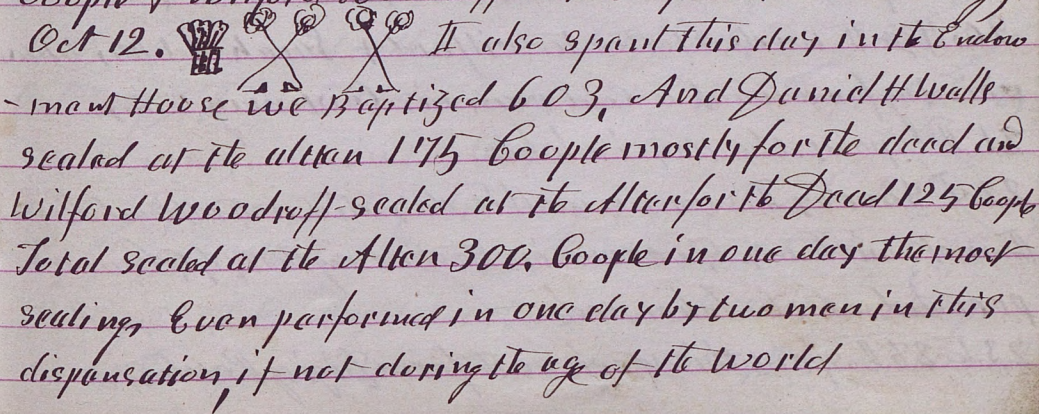 Oct 12. I also spent this day in the Endow
-ment House we Baptized 603, And Daniel H Wells
sealed at the alter 175 Coople mostly for the dead and
Wilford Woodruff sealed at the Alter for the Dead 125 Coople
Total sealed at the Alter 300. Coople in one day the most
sealings Ever performed in one day by two men in this
dispensation, if not during the age of the world